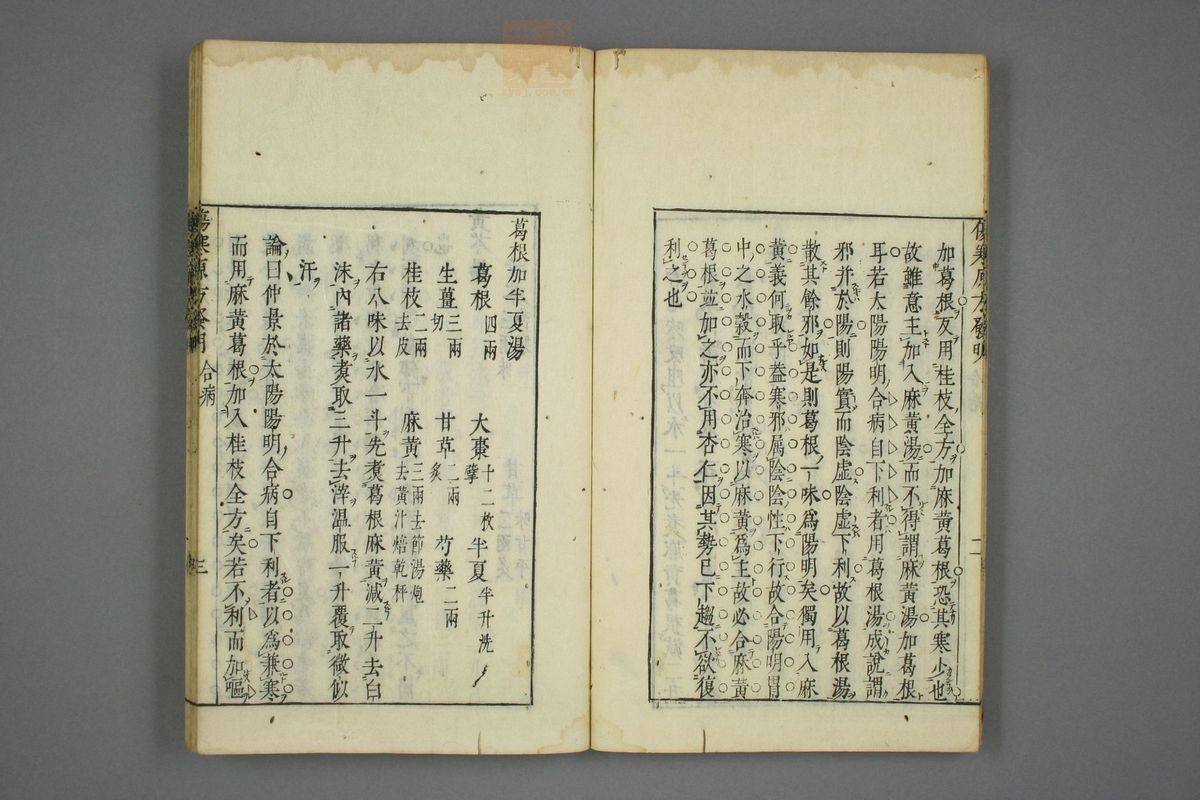 傷寒原方發明
二
加葛根反用桂枝全方加麻黄葛根恐其寒少也
故雖意主加入麻黄湯而不得謂麻黄湯加葛根
耳若太陽陽明合病自下利者用葛根湯成説謂
邪并於陽則陽實而陰虛陰虛下利故以葛根湯
散其餘邪如是則葛根一味爲陽明矣獨用入麻
黄義何取乎葢寒邪属陰陰性下行故合陽明胃
中之水穀而下奔治寒以麻黄爲主故必合麻黄
葛根並加之亦不用杏仁因其勢已下趨不欲復
利之也
葛根加半夏湯
葛根四兩 大棗十二枚擘 半夏半升洗
生薑三兩切 甘草二兩炙 芍藥二兩
桂枝二兩去皮 麻黄三兩去節湯炮去黄汁焙乾秤
右八味以水一斗先煑葛根麻黄減二升去白
沫内諸藥煑取三升去滓温服一升覆取微似
汗
論曰仲景於太陽陽明合病自下利者以爲兼寒
而用麻黄葛根加入桂枝全方矣若不利而加嘔
傷寒原方發明 合病
三